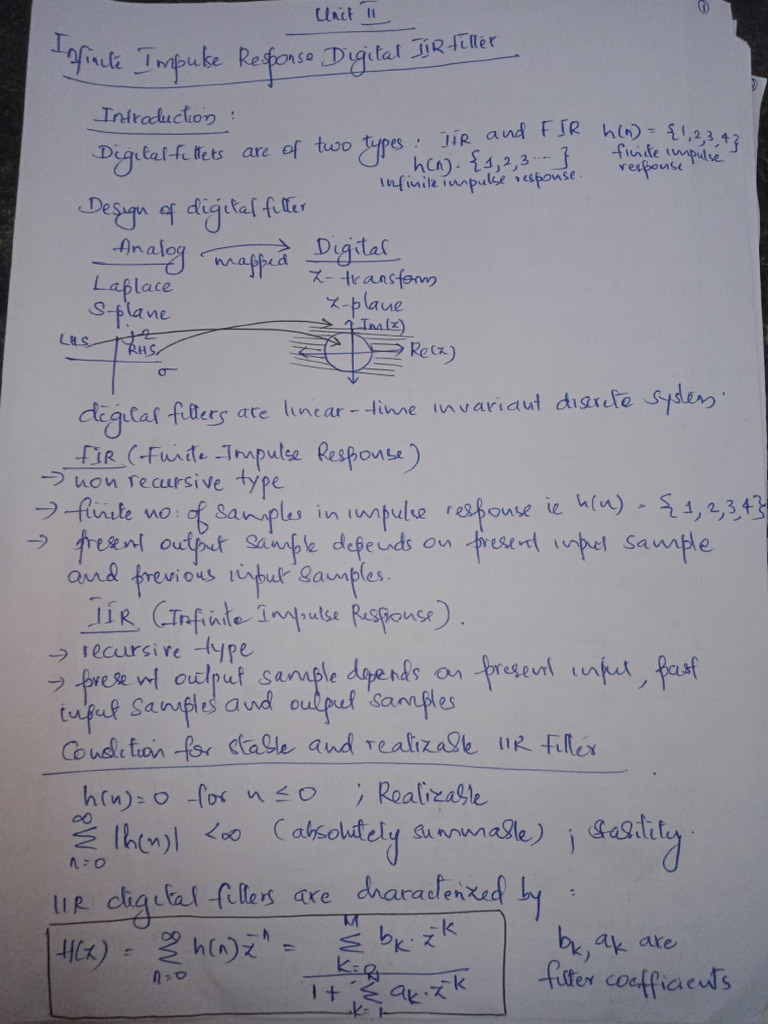 Unit II
①
Infinite Impulse Response Digital IIR filter
Introduction :
Digital filters are of two types : IIR and FIR h(n) = {1,2,3,4}
h(n) = {1,2,3 ....} finite impulse
infinite impulse response. response
Design of digital filter
Analog mapped Digital
Laplace Z-transform
S-plane Z-plane
LHS jΩ RHS σ Im(z) Re(z)
digital filters are linear-time invariant discrete system.
FIR (Finite Impulse Response)
→ non recursive type
→ finite no: of samples in impulse response ie h(n) = {1,2,3,4}
→ present output sample depends on present input sample
and previous input samples.
IIR (Infinite Impulse Response).
→ recursive type
→ present output sample depends on present input, past
input samples and output samples
Condition for stable and realizable IIR Filter
h(n)=0 for n ≤ 0 ; Realizable
∞ Σ n=0 |h(n)| < ∞ (absolutely summable) ; stability.
IIR digital filters are characterized by :
H(z) = ∞ Σ n=0 h(n) z^-n = M Σ k=0 b_k . z^-k / 1 + N Σ k=1 a_k . z^-k
b_k, a_k are
filter coefficients